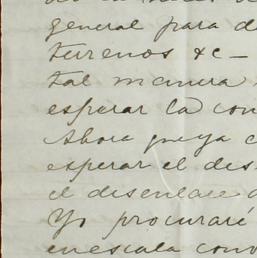 general para d
terrenos &c —
tal manera
esperar la con
Ahora que ya c
esperar el des
el desenlace d
Yo procuraré
en escala conv